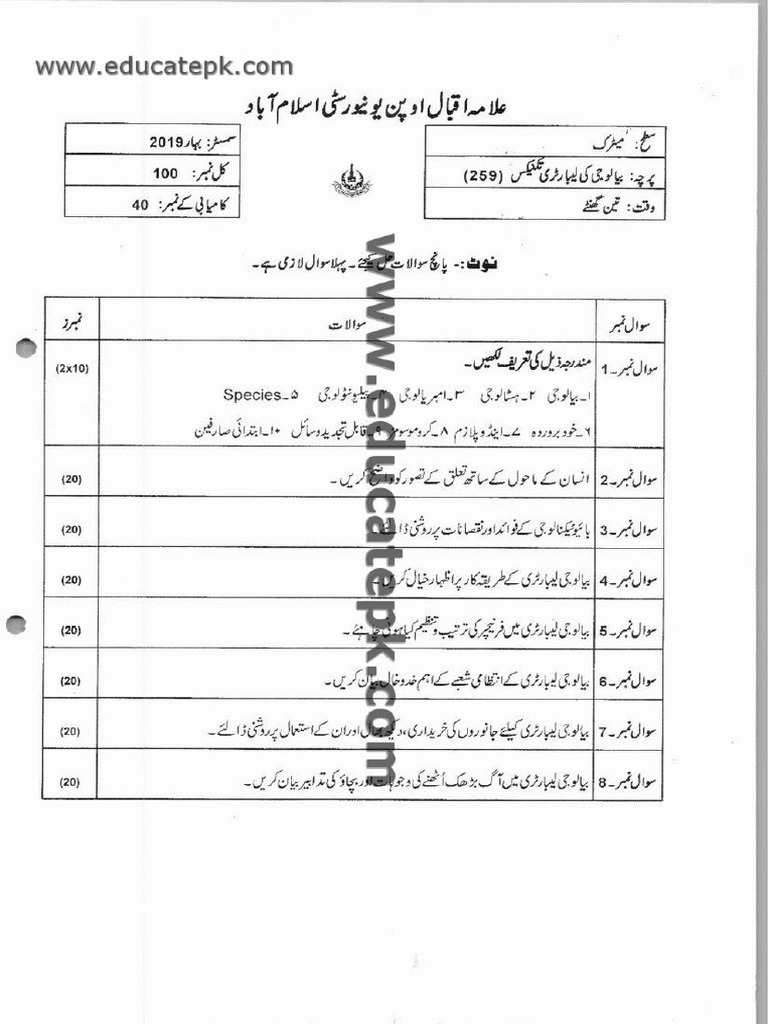 www.educatepk.com
علامہ اقبال اوپن یونیورسٹی اسلام آباد
سطح: میٹرک
پرچہ: بیالوجی کی لیبارٹری تکنیکس (259)
وقت: تین گھنٹے
سمسٹر: بہار 2019
کل نمبر: 100
کامیابی کے نمبر: 40
نوٹ:- پانچ سوالات حل کیجئے۔ پہلا سوال لازمی ہے۔
سوال نمبر سوالات نمبرز
سوال نمبر۔1 مندرجہ ذیل کی تعریف لکھیں۔ (2x10)
۱۔بیالوجی ۲۔ہسٹالوجی ۳۔امبریالوجی ۴۔پیلیونٹولوجی ۵۔Species
۶۔خود بروردہ ۷۔اینڈوپلازم ۸۔کروموسومز ۹۔قابل تجدید وسائل ۱۰۔ابتدائی صارفین
سوال نمبر۔2 انسان کے ماحول کے ساتھ تعلق کے تصور کو واضح کریں۔ (20)
سوال نمبر۔3 بائیوٹیکنالوجی کے فوائد اور نقصانات پر روشنی ڈالئے۔ (20)
سوال نمبر۔4 بیالوجی لیبارٹری کے طریقہ کار پر اظہار خیال کریں۔ (20)
سوال نمبر۔5 بیالوجی لیبارٹری میں فرنیچر کی ترتیب و تنظیم کیا ہونی چاہئے۔ (20)
سوال نمبر۔6 بیالوجی لیبارٹری کے انتظامی شعبے کے اہم خدوخال بیان کریں۔ (20)
سوال نمبر۔7 بیالوجی لیبارٹری کیلئے جانوروں کی خریداری، دیکھ بھال اور ان کے استعمال پر روشنی ڈالئے۔ (20)
سوال نمبر۔8 بیالوجی لیبارٹری میں آگ بڑھک اُٹھنے کی وجوہات اور بچاؤ کی تدابیر بیان کریں۔ (20)
www.educatepk.com